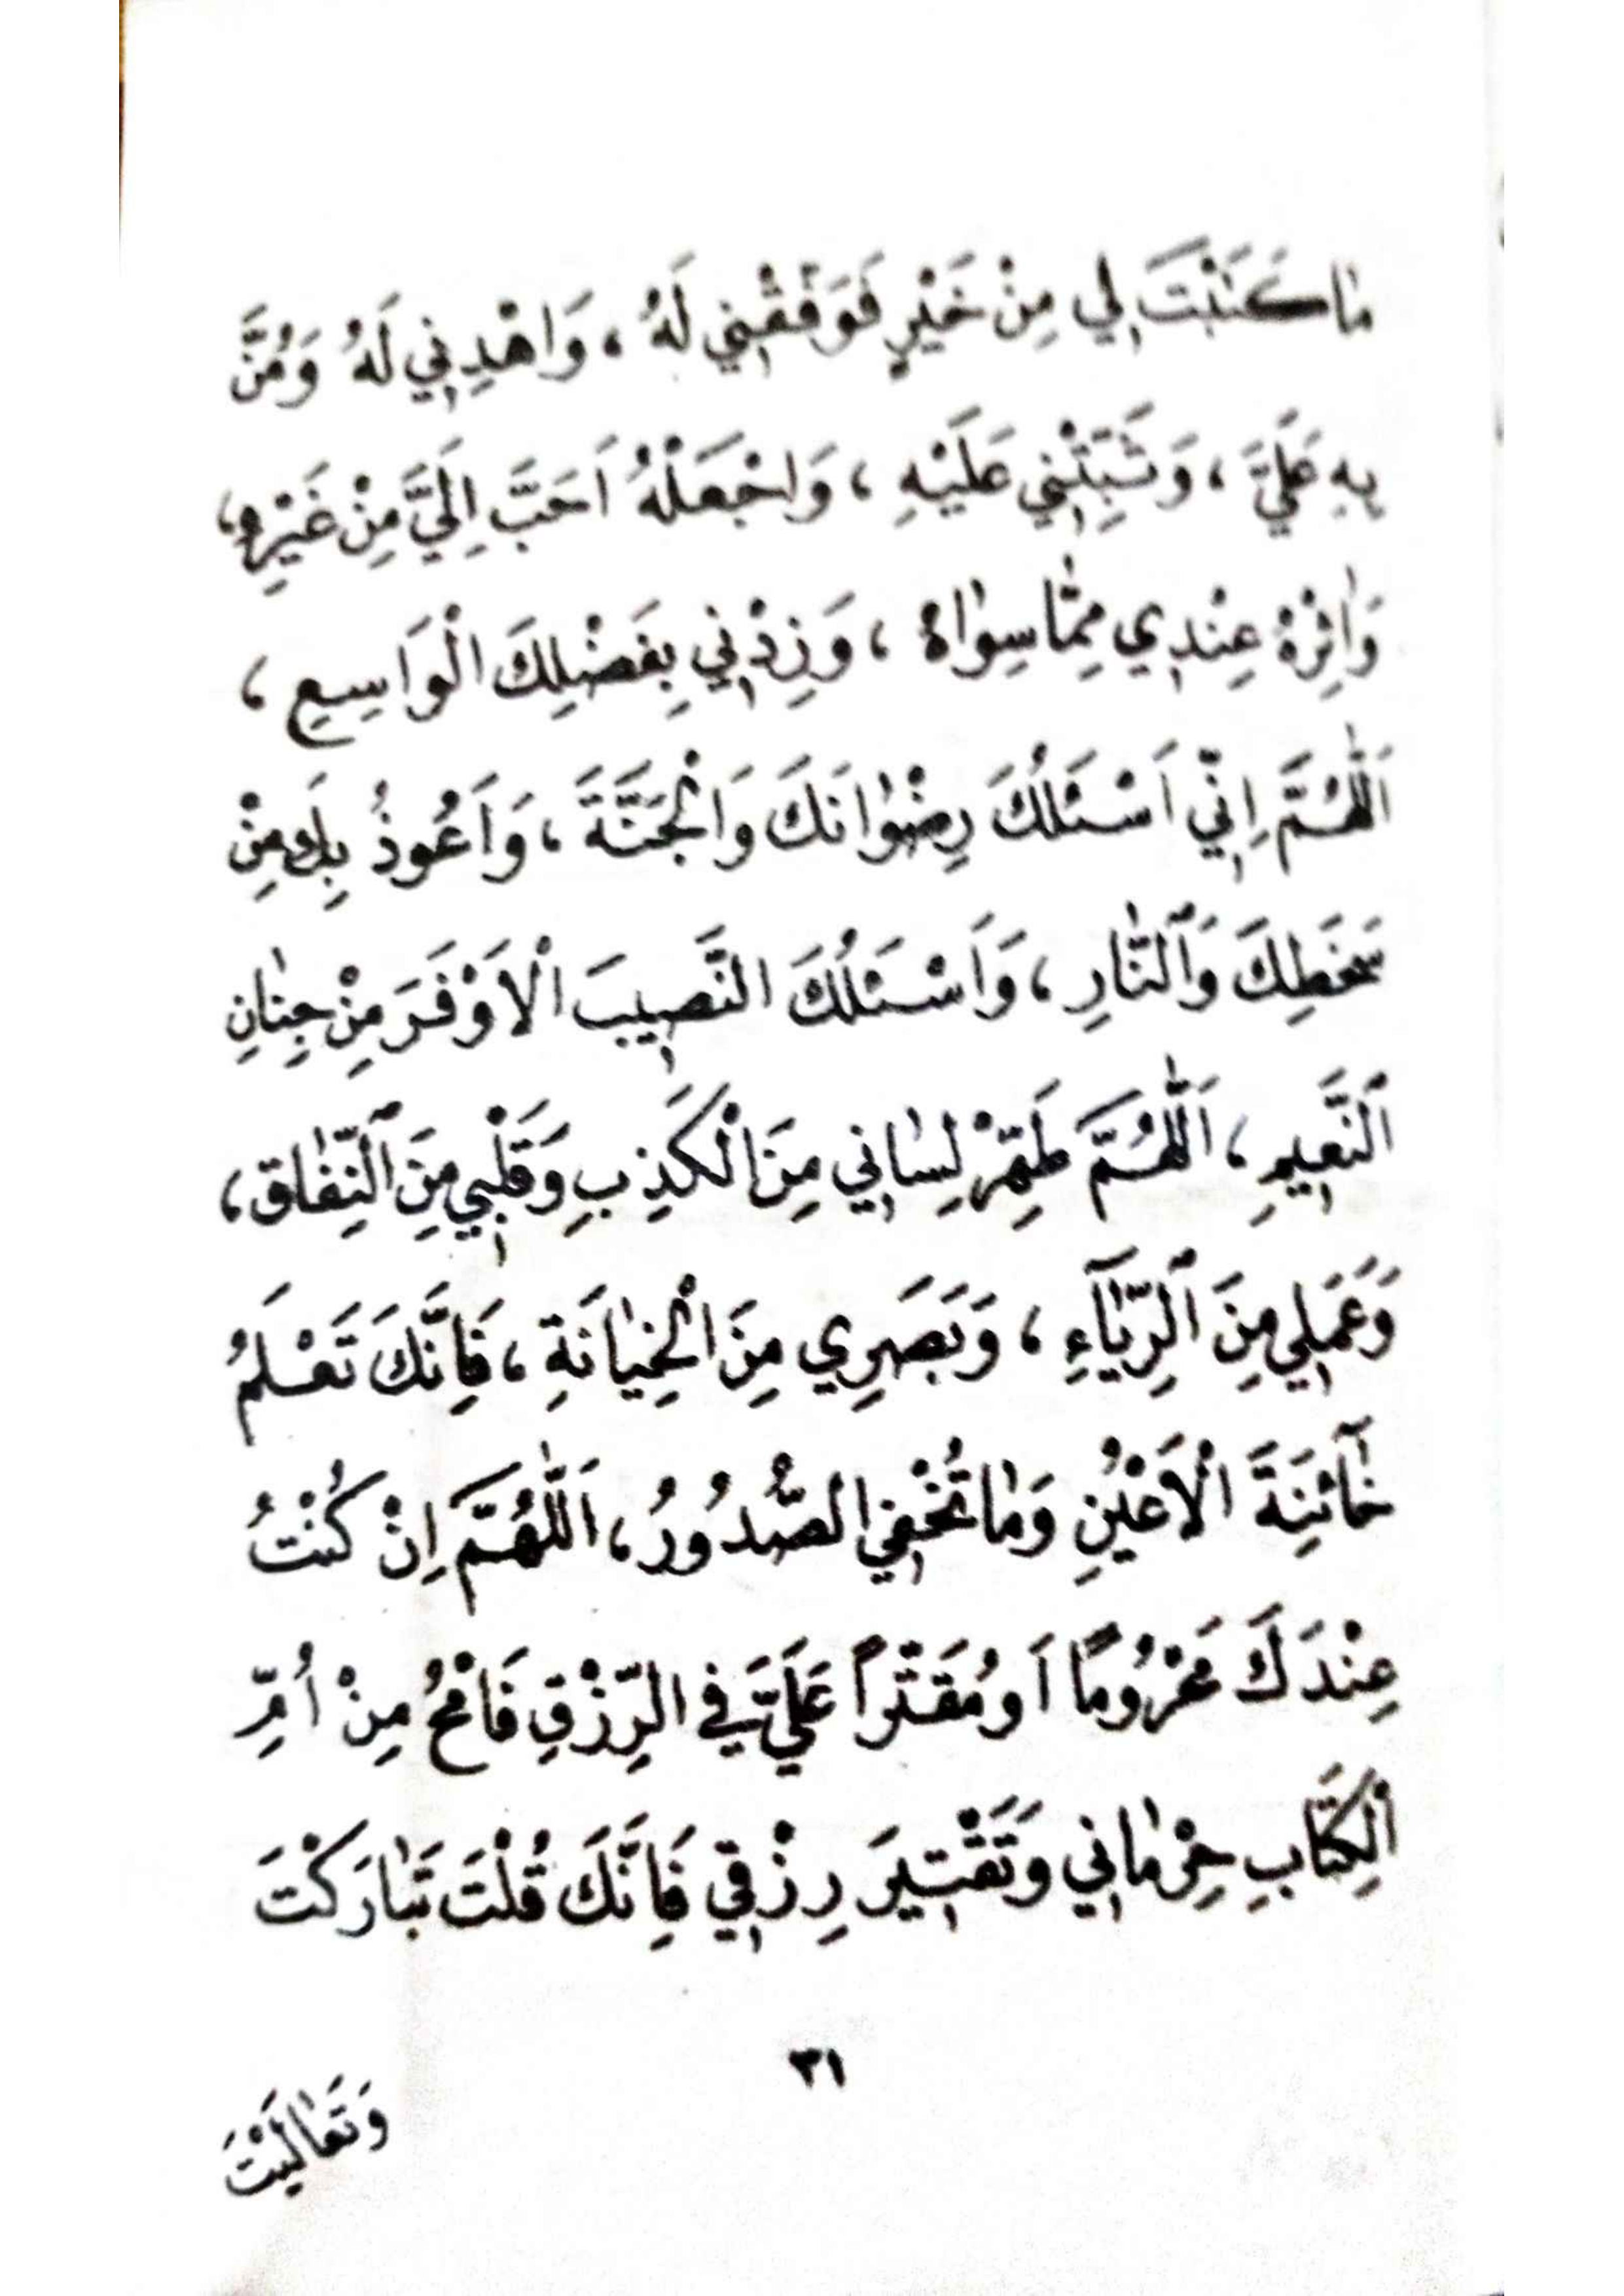 مٰا كَتَبْتَ لِي مِنْ خَيْرٍ فَوَفِّقْنِي لَهُ ، وَاهْدِنِي لَهُ وَمُنَّ
بِهِ عَلَيَّ ، وَثَبِّتْنِي عَلَيْهِ ، وَاجْعَلْهُ اَحَبَّ اِلَيَّ مِنْ غَيْرِهِ ،
وَاٰثِرْهُ عِنْدِي مِمّٰا سِوٰاهُ ، وَزِدْنِي بِفَضْلِكَ الْوَاسِعِ ،
اَللّٰهُمَّ اِنِّي اَسْئَلُكَ رِضْوٰانَكَ وَالْجَنَّةَ ، وَاَعُوذُ بِكَ مِنْ
سَخَطِكَ وَٱلنّٰارِ ، وَاَسْئَلُكَ النَّصِيبَ الْاَوْفَرَ مِنْ جِنٰانِ
ٱلنَّعِيمِ ، اَللّٰهُمَّ طَهِّرْ لِسٰانِي مِنَ الْكَذِبِ وَقَلْبِي مِنَ ٱلنِّفٰاقِ ،
وَعَمَلِي مِنَ ٱلرِّيٰاۤءِ ، وَبَصَرِي مِنَ الْخِيٰانَةِ ، فَاِنَّكَ تَعْلَمُ
خٰاۤئِنَةَ الْاَعْيُنِ وَمٰا تُخْفِي الصُّدُورُ ، اَللّٰهُمَّ اِنْ كُنْتُ
عِنْدَكَ مَحْرُومًا اَو مُقَتَّراً عَلَيَّ فِي الرِّزْقِ فَامْحُ مِنْ اُمِّ
الْكِتَابِ حِرْمٰانِي وَتَقْتِيرَ رِزْقِي فَاِنَّكَ قُلْتَ تَبٰارَكْتَ
٣١
وَتَعٰالَيْتَ